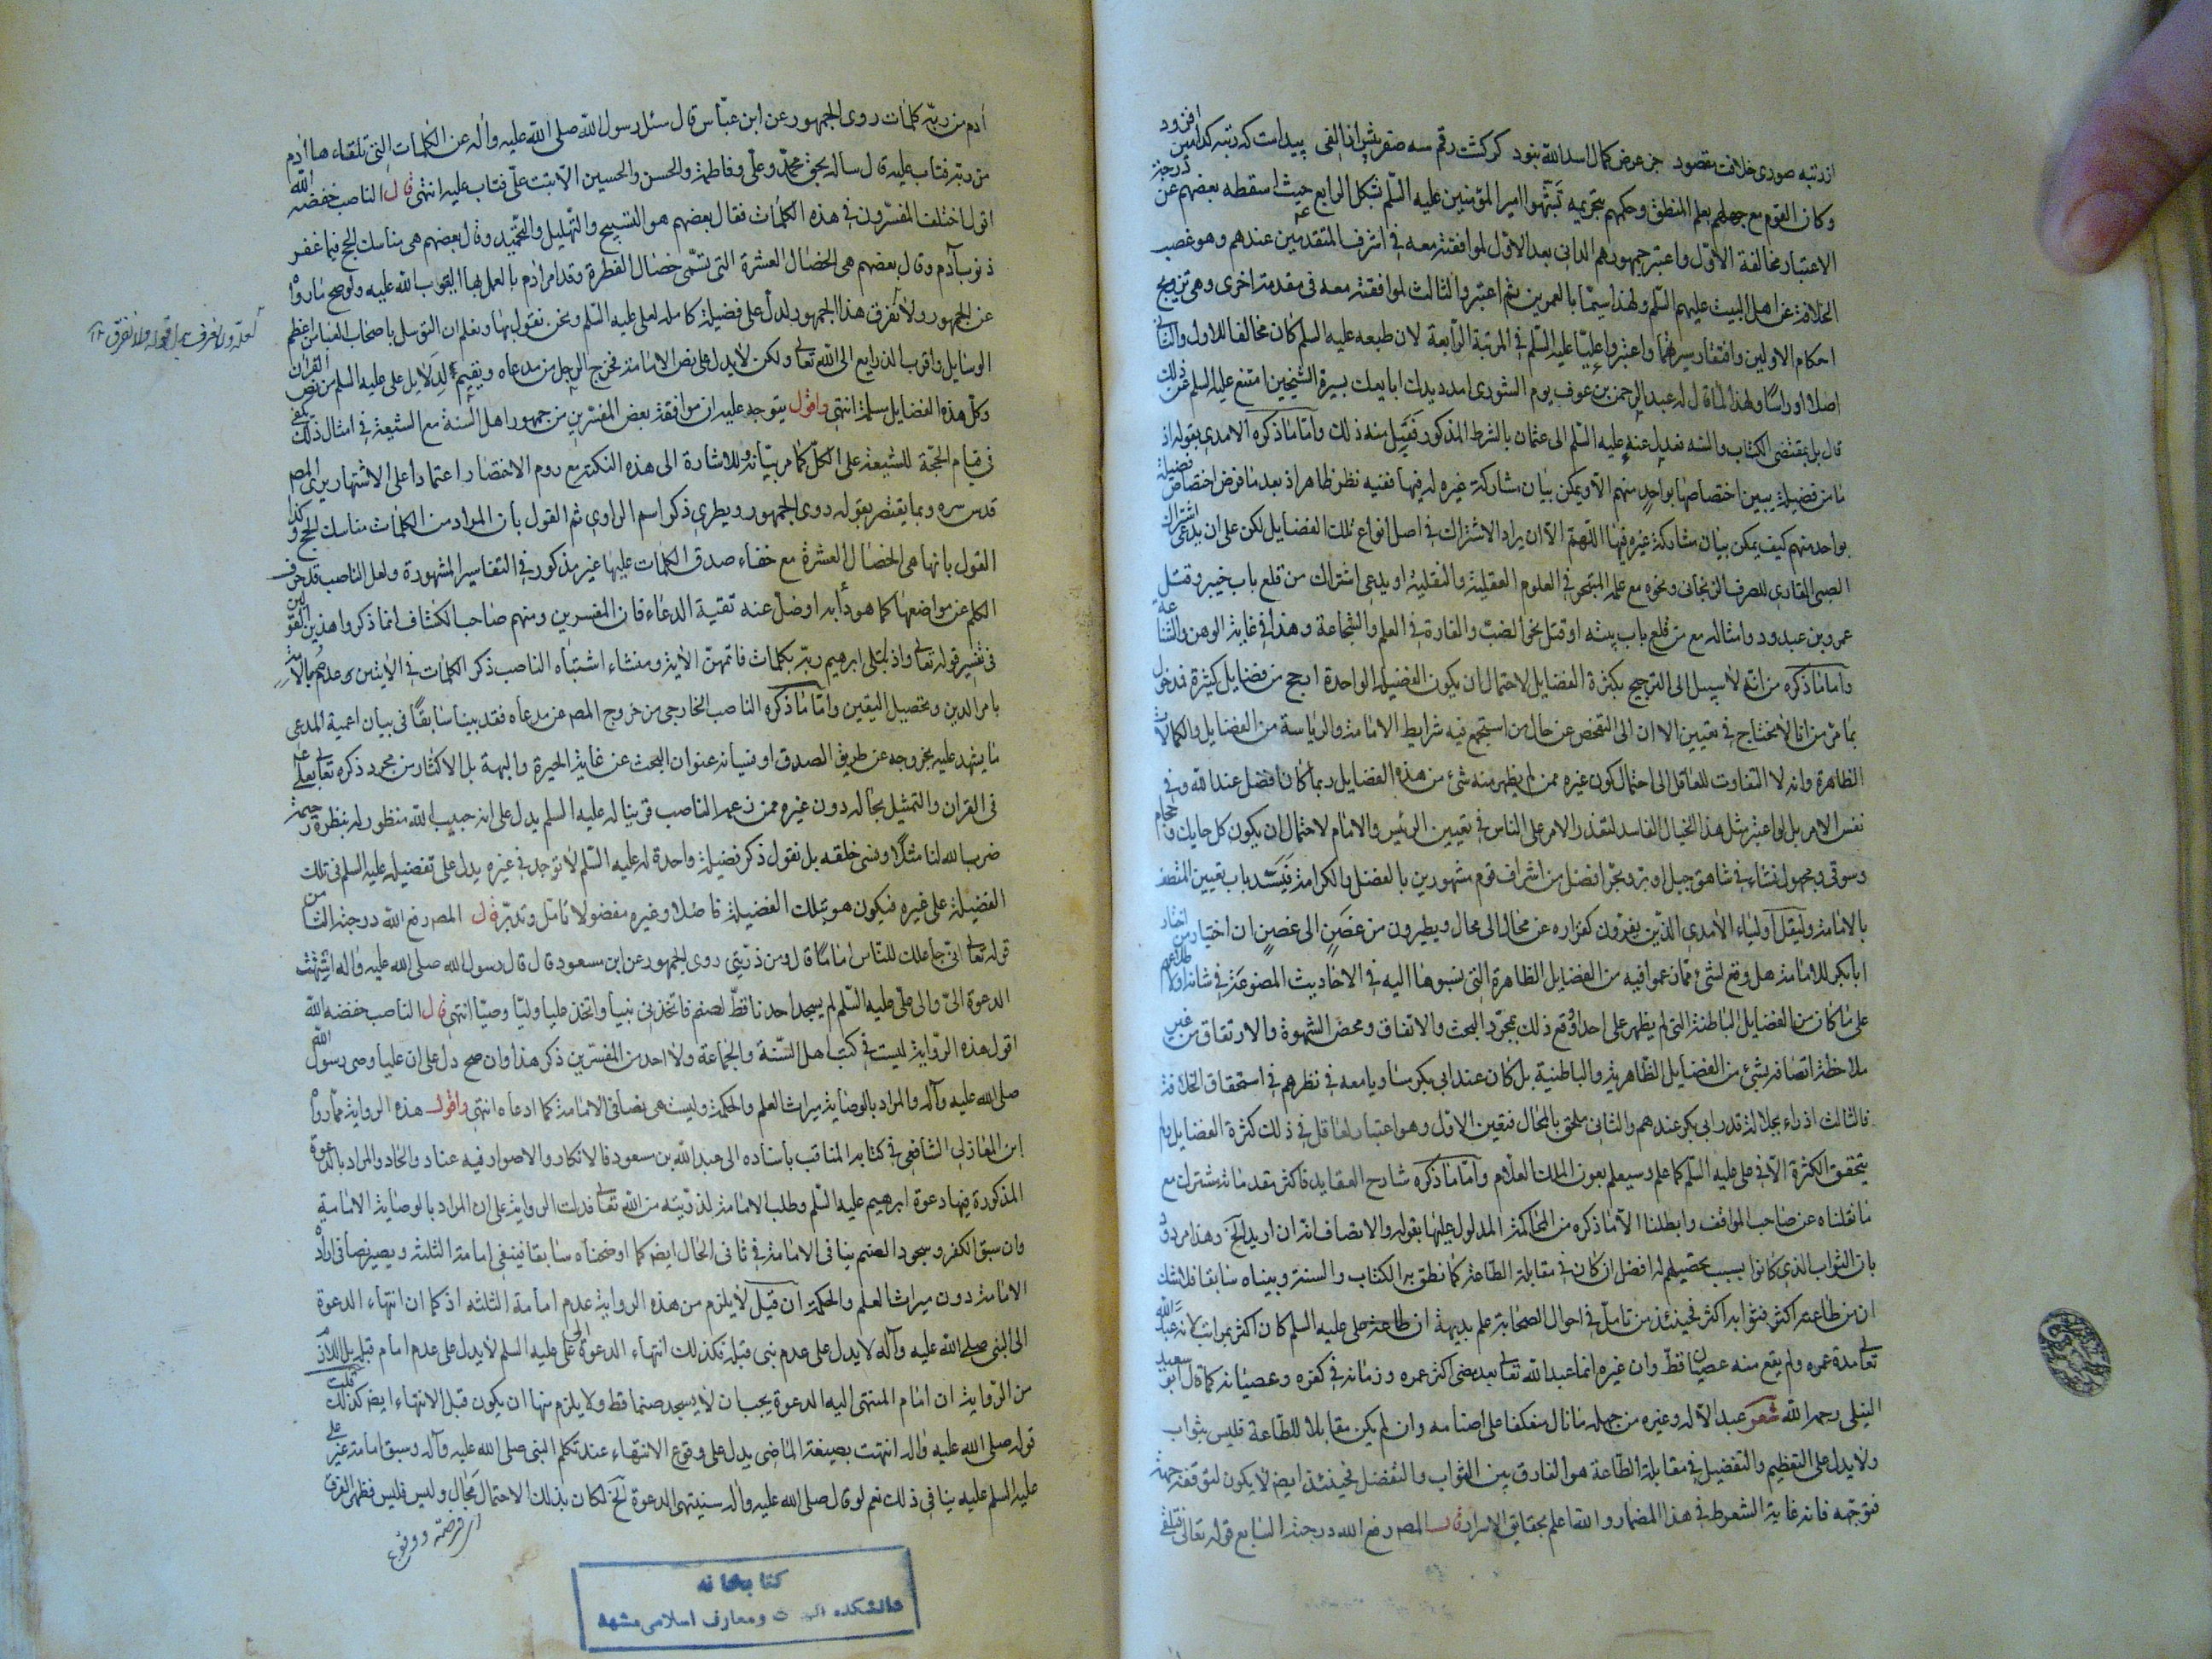 از رتبه صوری خلافت مقصود جز عرض کمال اسدالله نبود کر کشت رقم سه صفر پیش از الفی پیداست که رتبه کدامین افزود
وكان القوم مع جهلهم بعلم المنطق وحكمهم بتحريمه تنبّهوا امير المؤمنين عليه السّلم بشكل الرابع حيث اسقطه بعضهم عن درجة
الاعتبار مخالفة الاوّل واعتبر جمهورهم الثانى بعد الاوّل لموافقته معه فى اشرف المتقدمتين عندهم وهو غصب
الخلافة عن اهل البيت عليهم السّلم ولهذا سميّا بالعمرين ثم اعتبروا الثالث لموافقته معه فى مقدمة اخرى وهى ترويج
احكام الاولين واقتفاء سيرتهما واعتبروا عليّا عليه السّلم فى المرتبة الرّابعة لان طبعه عليه السلم كان مخالفا للاول والثانى
اصلا وراسًا ولهذا لما قال له عبد الرحمن بن عوف يوم الشورى امدد يدك ابايعك بسيرة الشيخين امتنع عليه السلم عن ذلك
قال بل بمقتضى الكتاب والسنه فعدل عنه عليه السّلم الى عثمان بالشرط المذكور فقبل منه ذلك وامّا ما ذكره الامدى بقوله اذ
ما من فضيلة يبين اختصاصها بواحد منهم الّا ويمكن بيان مشاركة غيره له فيها ففيه نظر ظاهر اذ بعد ما فرض اختصاص فضيلة
بواحد منهم كيف يمكن بيان مشاركة غيره فيها اللّهمّ الّا ان يراد الاشتراك فى اصل انواع تلك الفضايل لكن على ان يدعى اشتراك
الصبى القارى للصرف الزنجانى ونحوه مع علم المتبحر فى العلوم العقلية والنقلية او يدعى اشتراك من قلع باب خيبر وقتل
عمرو بن عبدود وامثاله مع من قلع باب بيته او قتل نحو الضبّ والفارة فى العلم والشجاعة وهذا فى غاية الوهن والشناعة
وامّا ما ذكره من انّه لا سبيل الى الترجيح بكثرة الفضايل لاحتمال ان يكون الفضيلة الواحدة ارجح من فضايل كثيرة فدخول
بما مرّ من انا لا نحتاج فى تعيين الاان الى التفحص عن حال من استجمع فيه شرايط الامامة والرياسة من الفضايل والكمالات
الظاهرة وانه لا التفاوت للعاقل الى احتمال كون غيره ممن لم يظهر منه شئ من هذه الفضايل ربما كان افضل عند الله وفى
نفس الامر بل لو اعتبر مثل هذا الخيال الفاسد لتعذر الامر على الناس فى تعيين الرئيس والامام لاحتمال ان يكون كل حايك وحجام
وسوقى ومجهول نشاء فى شاهق جبل او برّ وبحر افضل من اشراف قوم مشهورين بالفضل والكرامة فينسد باب تعيين المتصف
بالامامة وليقل اولياء الامدى الذين يفرّون كفراره عن محال الى محال ويطيرون من غصن الى غصن ان اختيار من اختار
ابابكر للامامة هل وقع لشئ مما زعموا فيه من الفضايل الظاهرة التى ينسبوها اليه فى الاحاديث المصنوعة فى شانه او لاطلاعهم
على ما كان من الفضايل الباطنة التى لم يظهر على احد او وقع ذلك بمجرّد البحت والاتفاق ومحض الشهوة والارتفاق من غير
ملاحظة اتصافه بشئ من الفضايل الظاهرية والباطنية بل كان عند ابى بكر مساويا معه فى نظرهم فى استحقاق الخلافة
فالثالث ازراء بجلالة قدر ابى بكر عندهم والثانى ملحق بالمحال فتعين الاوّل وهو اعتبار لعاقل فى ذلك كثرة الفضايل ولم
يتحقق الكثرة الّا فى على عليه السّلم كما علم وسيعلم بعون الملك العلّام وامّا ما ذكره شارح العقايد فاكثر مقدماته مشترك مع
ما نقلناه عن صاحب المواقف وابطلنا الّا ما ذكره من المحاكمة المدلول عليها بقوله والانصاف انه ان اريد الخ وهذا مردود
بان الثواب الذى كانوا بسبب تحصيلهم له افضل ان كان فى مقابلة الطّاعة كما نطق به الكتاب والسنة وبيناه سابقا فلا شك
ان من طاعته اكثر فثوابه اكثر فحينئذ من تامل فى احوال الصحابة علم بديهة ان طاعة على عليه السلم كان اكثر بمراتب لانه عبد الله
تعالى مدة عمره ولم يقع منه عصيان قطّ وان غيره انما عبد الله تعالى بعد مضى اكثر عمره وزمانه فى كفره وعصيانه كما قال ابو سعيد
النيلى رحمه الله شعر عبد الاله وغيره من جهله ما زال منعكفا على اصنامه وان لم يكن مقابلا للطّاعة فليس بثواب
ولا يدل على التعظيم والتفضيل فى مقابلة الطّاعة هو الفارق بين الثواب والتفضل فحينئذ ايضا لا يكون لتوقفه جهة
فتوجّه فانه غاية الشعوط فى هذا المضمار والله اعلم بحقايق الاسرار قال المصر رفع الله درجته السابع قوله تعالى فتلقى
آدم من ربّه كلمات روى الجمهور عن ابن عبّاس قال سئل رسول الله صلى الله عليه وآله عن الكلمات التى تلقاها آدم
من ربّه فتاب عليه قال سأله بحق محمّد وعلى وفاطمة والحسن والحسين الّا تبت علىّ فتاب عليه انتهى قال الناصب خفضه الله
اقول اختلف المفسّرون فى هذه الكلمات فقال بعضهم هو التسبيح والتّهليل والتحميد وقال بعضهم هى مناسك الحج فيها غفر
ذنوب آدم وقال بعضهم هى الخصال العشرة التى تسمّى خصال الفطرة وقد امر آدم بالعمل بها ليتوب الله عليه ولو صح ما رواه
عن الجمهور ولا نعرف هذا الجمهور لدلّ على فضيلة كاملة لعلى عليه السّلم ونحن نقول بها ونعلم ان التوسل باصحاب العبا من اعظم
الوسايل واقرب الذرايع الى الله تعالى ولكن لا يدل على نص الامامة فخرج الرجل من مدعاه ويقيم الدلايل على عليه السلم من نص القران
وكلّ هذه الفضايل مسلّمة انتهى واقول يتوجه عليه ان موافقة بعض المفسّرين من جمهور اهل السنة مع الشيعة فى امثال ذلك يكفى
فى قيام الحجّة للشيعة على الكلّ كما مر بيانه وللاشارة الى هذه النكتة مع روم الاختصار اعتمادا على الاشتهار يرتى المصر
قدس سره ربما يقتصر بقوله روى الجمهور ويطرى ذكر اسم الراوى ثم القول بان المراد من الكلمات مناسك الحج وكذا
القول بانها هى الخصال العشرة مع خفاء صدق الكلمات عليها غير مذكور فى التفاسير المشهورة ولعل الناصب قد حرف
الكلم عن مواضعها كما هو دأبه او ضلّ عنه تقية الدعاء فان المفسرين ومنهم صاحب الكشاف انما ذكروا هذين القولين
فى تفسير قوله تعالى واذ ابتلى ابرهيم ربّه بكلمات فاتمهنّ الاية ومنشاء اشتباه الناصب ذكر الكلمات فى الايتين وعدم مبالاته
بامر الدين وتحصيل اليقين وامّا ما ذكره الناصب الخارجى من خروج المصر عن مدعاه فقد بينا سابقًا فى بيان اعمية المدعى
ما يشهد عليه بخروجه عن طريق الصدق او نسيانه عنوان البحث عن غاية الحيرة والبهة بل الاكثار من مجرد ذكره تعالى لعلى عم
فى القران والتمثيل بحاله دون غيره ممن زعمه الناصب قرينا له عليه السلم يدل على انه حبيب الله منظور له بنظرة رحيمة
ضرب الله لنا مثلًا ونسى خلقه بل نقول ذكر فضيلة واحدة له عليه السّلم لا توجد فى غيره يدل على تفضيله عليه السلم فى تلك
الفضيلة على غيره فيكون هو بتلك الفضيلة فاضلا وغيره مفضولا تامل وتدبّر قال المصر رفع الله درجته الثامن
قوله تعالى انى جاعلك للنّاس امامًا قال ومن ذرّيتى روى الجمهور عن ابن مسعود قال قال رسول الله صلى الله عليه وآله انتهت
الدعوة الىّ والى على عليه السّلم لم يسجد احدنا قطّ لصنم فاتخذنى نبيا واتخذ عليا وليّا وصيّا انتهى قال الناصب خفضه الله
اقول هذه الرواية ليست فى كتب اهل السّنة والجماعة ولا احد من المفسّرين ذكر هذا وان صح دل على ان عليا وصى رسول الله
صلى الله عليه وآله والمراد بالوصاية ميراث العلم والحكمة وليست هى نصا فى الامامة كما ادعاه انتهى واقول هذه الرواية مما رواه
ابن المغازلى الشافعى فى كتابه المناقب باسناده الى عبد الله بن مسعود فالانكار والاصرار فيه عناد والحاد والمراد بالدعوة
المذكورة فيها دعوة ابرهيم عليه السّلم وطلب الامامة لذرّيته من الله تعالى فدلت الرواية على ان المراد بالوصاية الامامية
وان سبق الكفر وسجود الصنم ينافى الامامة فى ثانى الحال ايضا كما اوضحناه سابقا فينفى امامة الثلثة ويصير نصا فى ارادة
الامامة دون ميراث العلم والحكمة ان قيل لا يلزم من هذه الرواية عدم امامة الثلثه اذ كما ان انتهاء الدعوة
الى النبى صلى الله عليه وآله لا يدل على عدم نبى قبله فكذلك انتهاء الدعوة الى على عليه السلم لا يدل على عدم امام قبله بل اللازم
من الرواية ان امام المنتهى اليه الدعوة يجب ان لا يسجد صنما قط ولا يلزم منها ان يكون قبل الانتهاء ايضا كذلك قلت
قوله صلى الله عليه وآله انتهت بصيغة الماضى يدل على وقوع الانتهاء عند تكلم النبى صلى الله عليه وآله وسبق امامة غير على
عليه السلم عليه ينافى ذلك نعم لو قال صلى الله عليه وآله سينتهى الدعوة الخ لكان بذلك الاحتمال مجال وليس فليس فظهر الفرق
كتابخانه
دانشكده الهيات ومعارف اسلامى مشهد